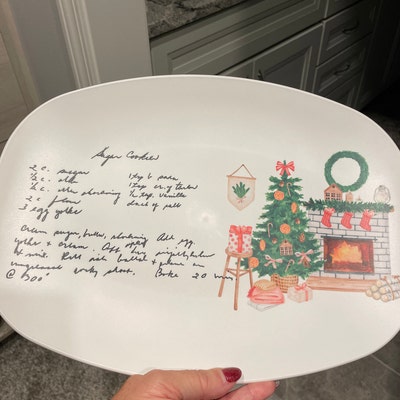 Sugar Cookies
2 c. sugar 1 tsp b. soda
½ c. oleo 1 tsp cr. of tartar
½ c. oleo shortening ½ tsp. vanilla
2 c flour dash of salt
3 egg yolks
Cream sugar, butter, shortening Add egg
yolks + cream. Add
+ mix. Roll into balls + place on
ungreased cooky sheet. Bake 20 min
@ 300°